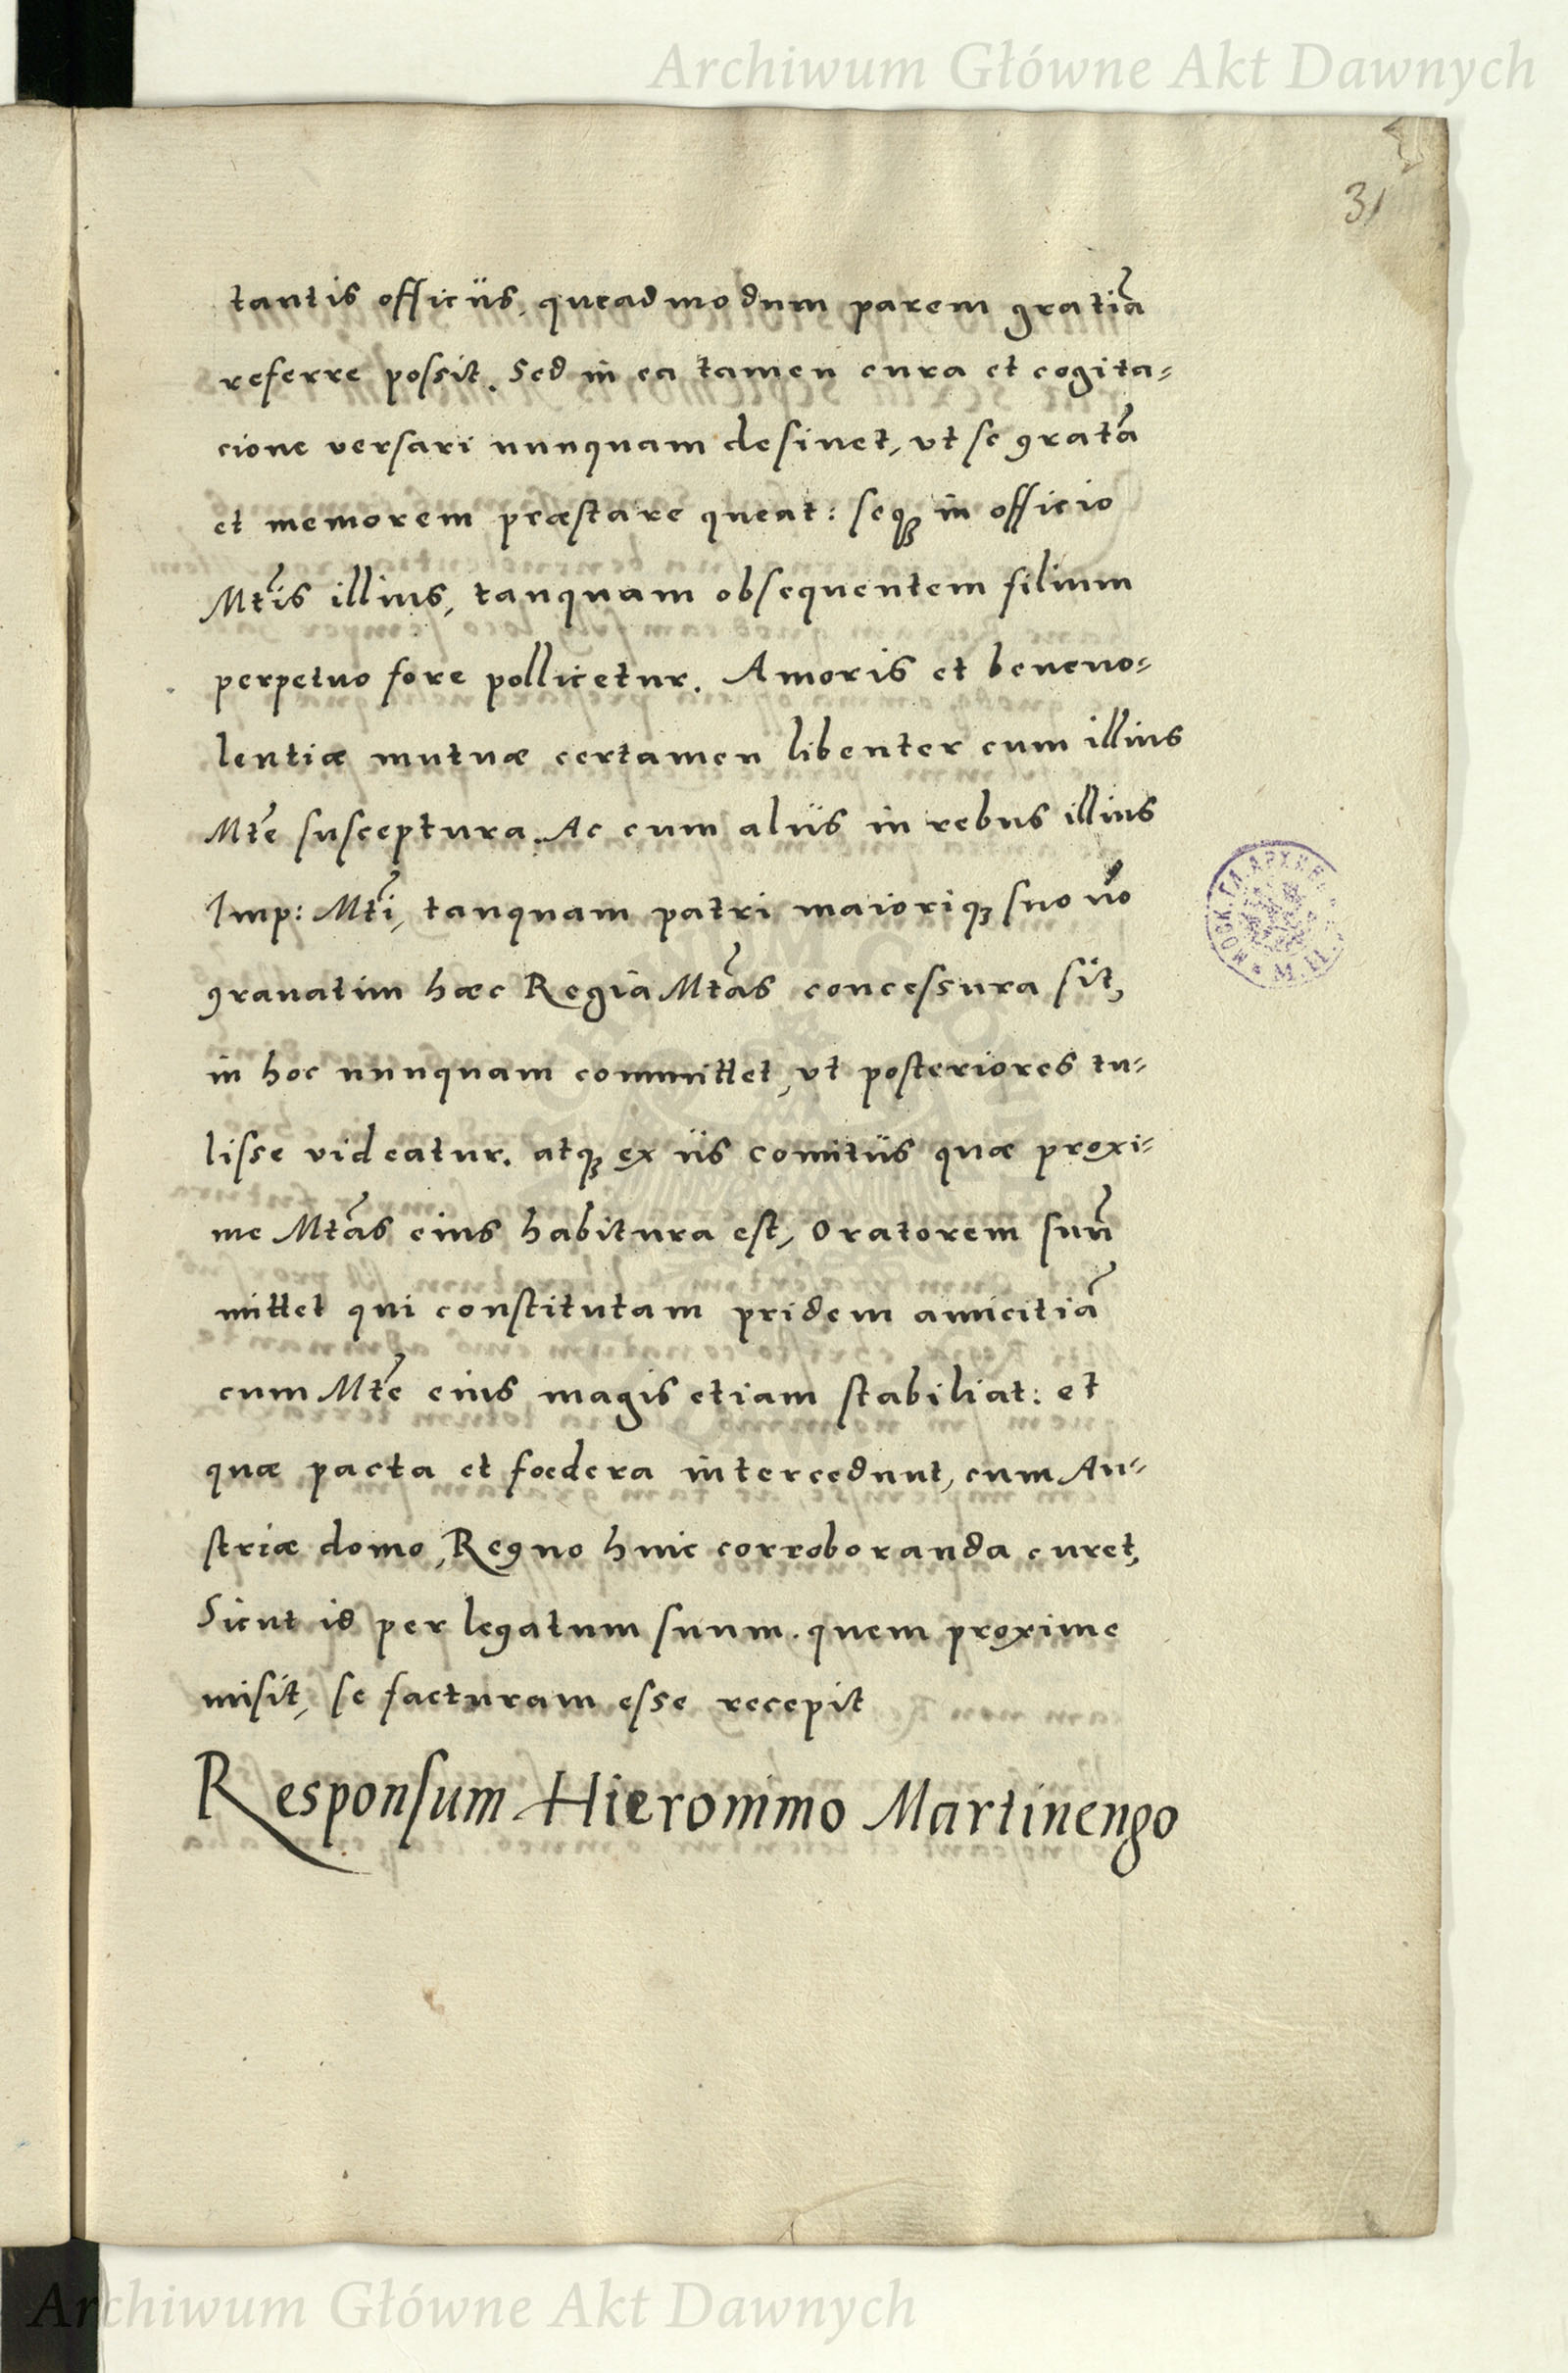 Archiwum Główne Akt Dawnych
31
tantis officiis, queadmodum parem gratiā
referre possit. Sed in ea tamen cura et cogita=
cione versari nunquam desinet, vt se gratā
et memorem præstare queat: seqȝ in officio
Mt̃is illius, tanquam obsequentem filium
perpetuo fore pollicetur. Amoris et beneuo=
lentiæ mutuæ certamen libenter cum illius
Mt̃e susceptura. Ac cum aliis in rebus illius
Imp: Mt̃i, tanquam patri maioriqȝ suo nō
grauatim hæc Regia Mt̃as concessura sit,
in hoc nunquam committet, vt posteriores tu=
lisse videatur. atqȝ ex iis comitiis quæ proxi=
me Mt̃as eius habitura est, Oratorem suū
mittet qui constitutam pridem amicitiā
cum Mt̃e eius magis etiam stabiliat: et
quæ pacta et foedera intercedunt, cum Au=
striæ domo, Regno huic corroboranda curet,
Sicut id per legatum suum. quem proxime
misit, se facturam esse recepit
Responsum Hieronimo Martinengo
Archiwum Główne Akt Dawnych